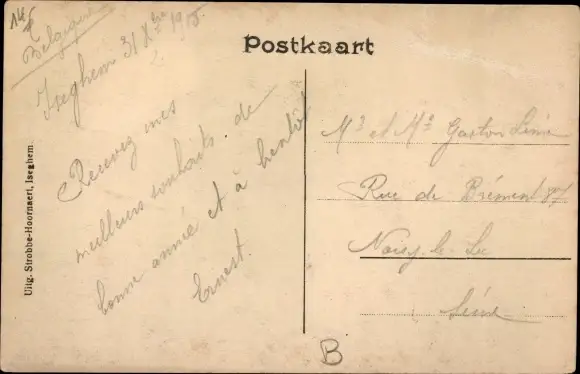 14
Belgique
Iseghem 31 Xbre 1918.
Postkaart
Recevez mes
meilleurs souhaits de
bonne année et à bientôt
Ernest.
Mr et Me Gaston
Rue de Brément 87
Noisy-le-Sec
Seine
B
Uitg. Strobbe-Hoornaert, Iseghem.